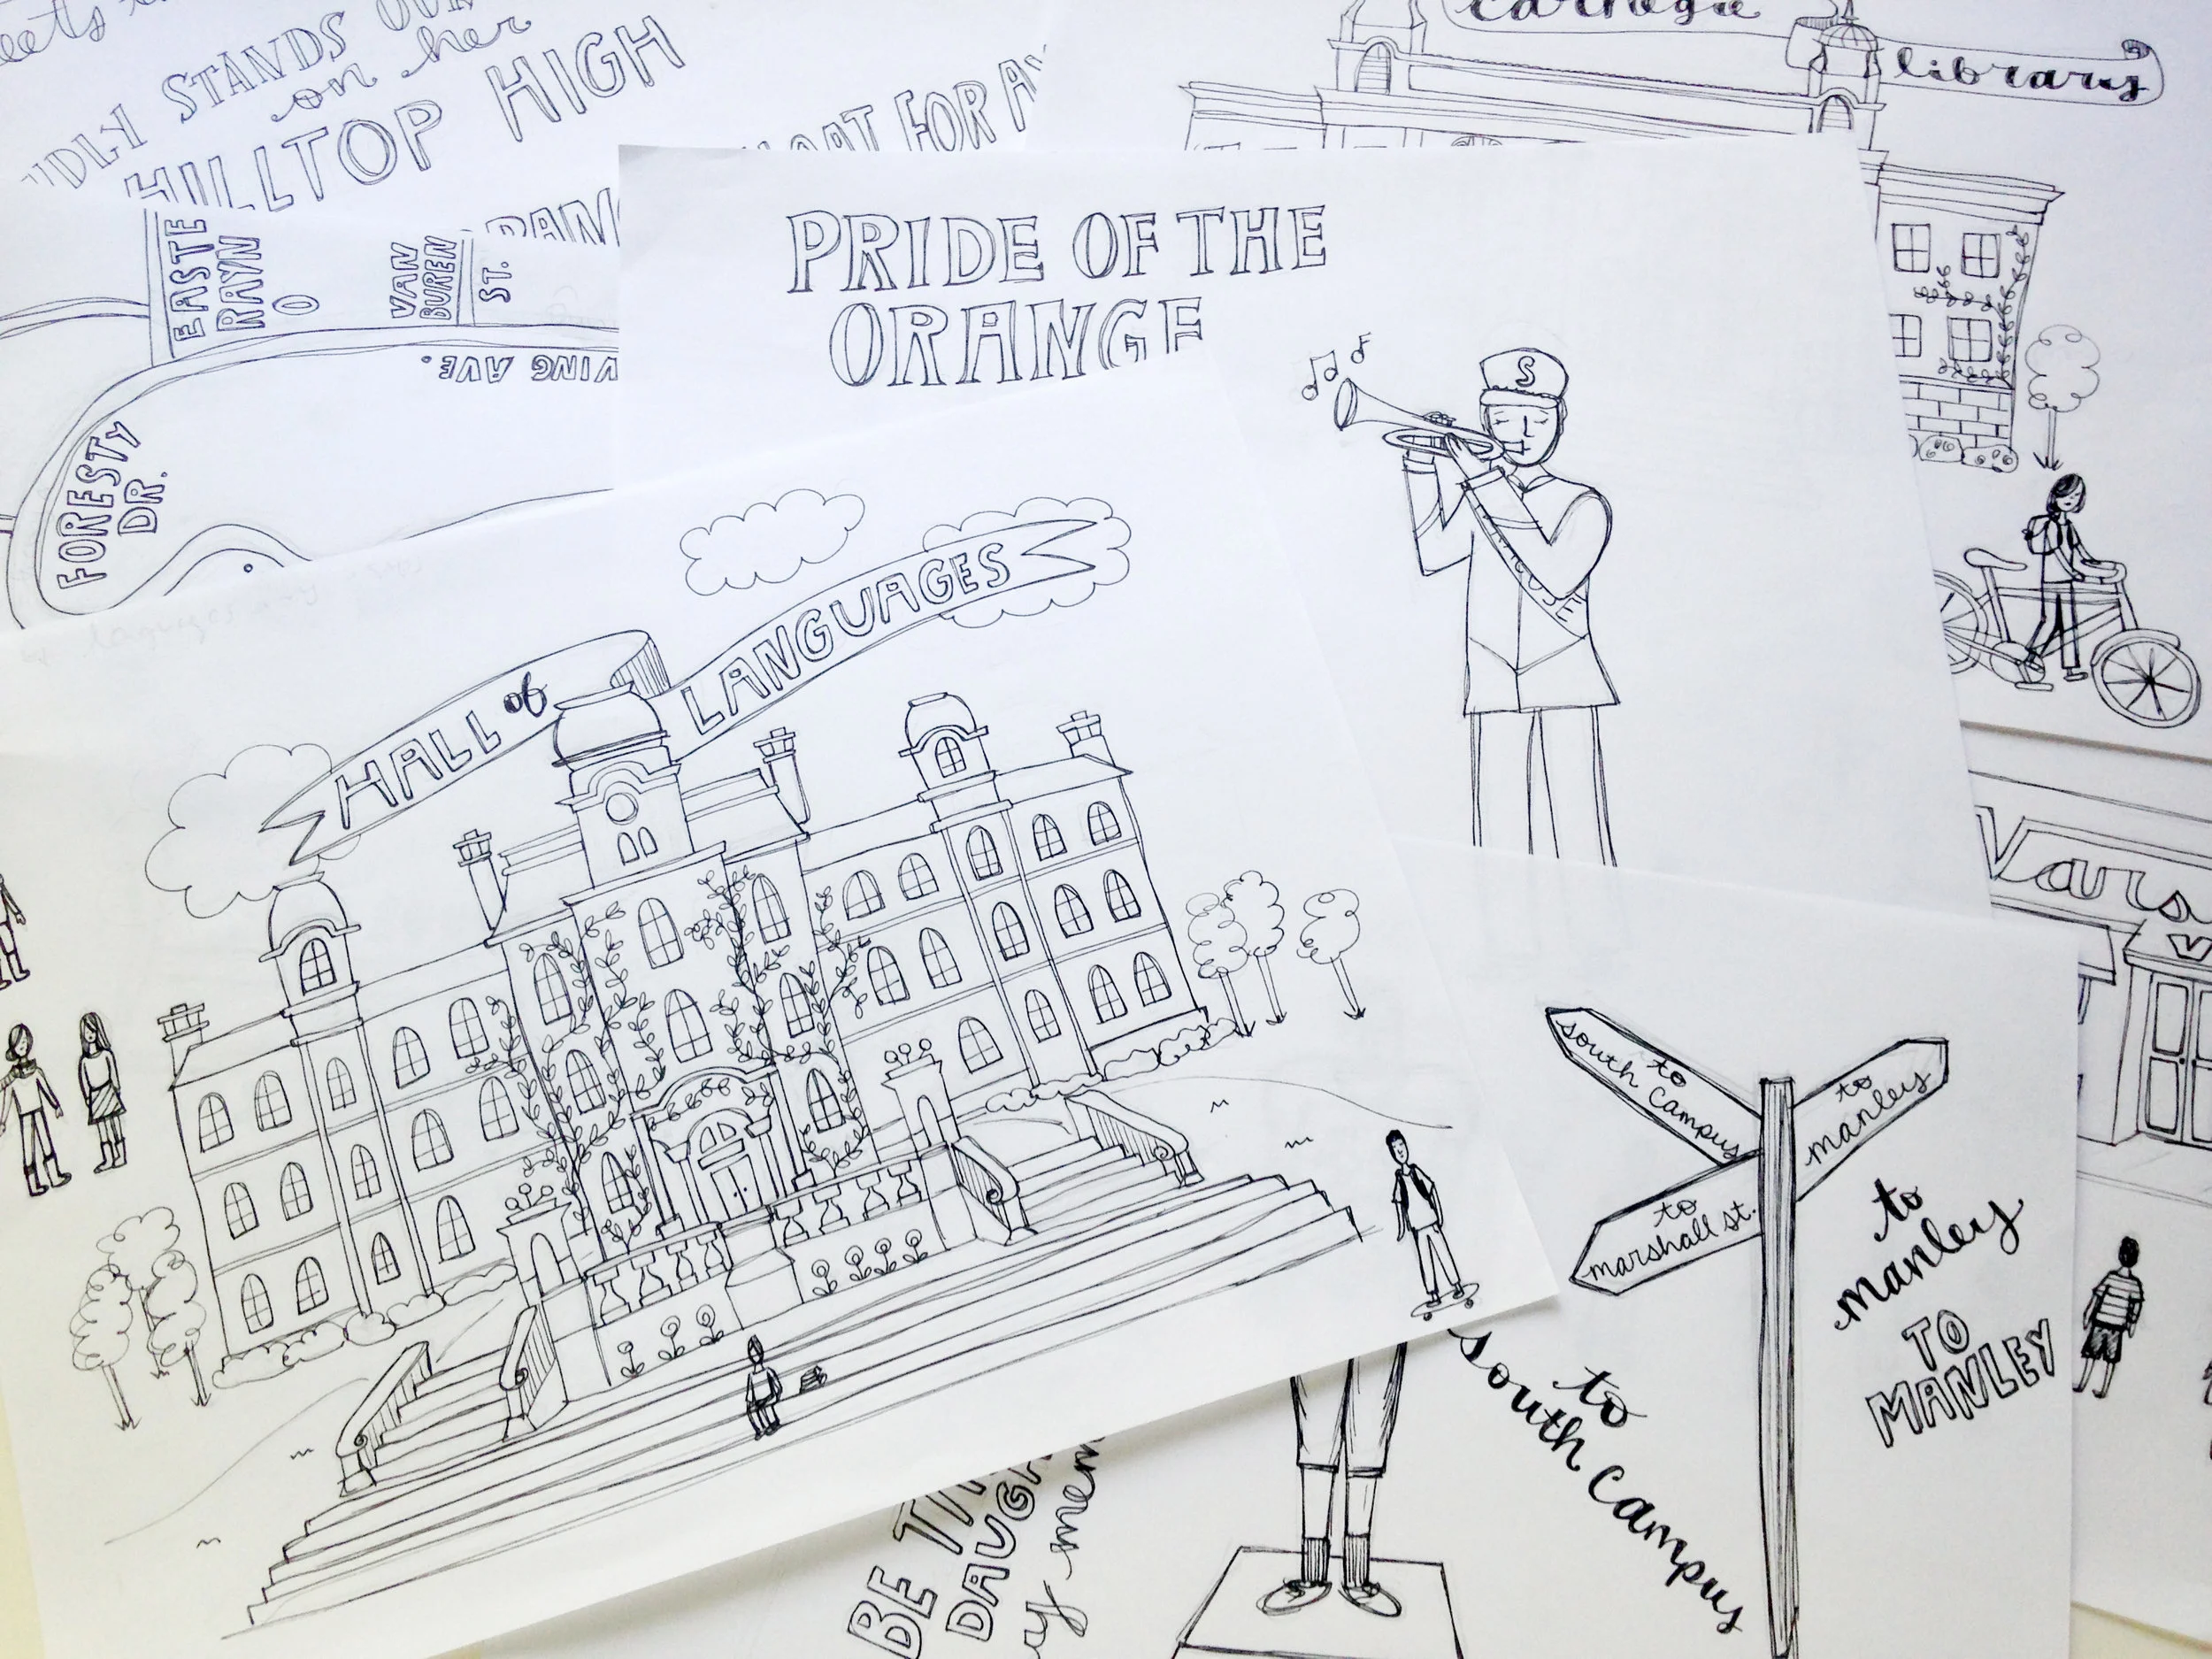 STANDS
on her
HILLTOP HIGH
FOR
carnegie
library
EASTE
RAYN
O
VAN
BUREN
ST.
VING AVE.
FORESTY
DR.
PRIDE OF THE
ORANGE
S
HALL of
LANGUAGES
Vars
V
to
south campus
to
manley
to
marshall st.
to
manley
TO
MANLEY
to
south campus
BE